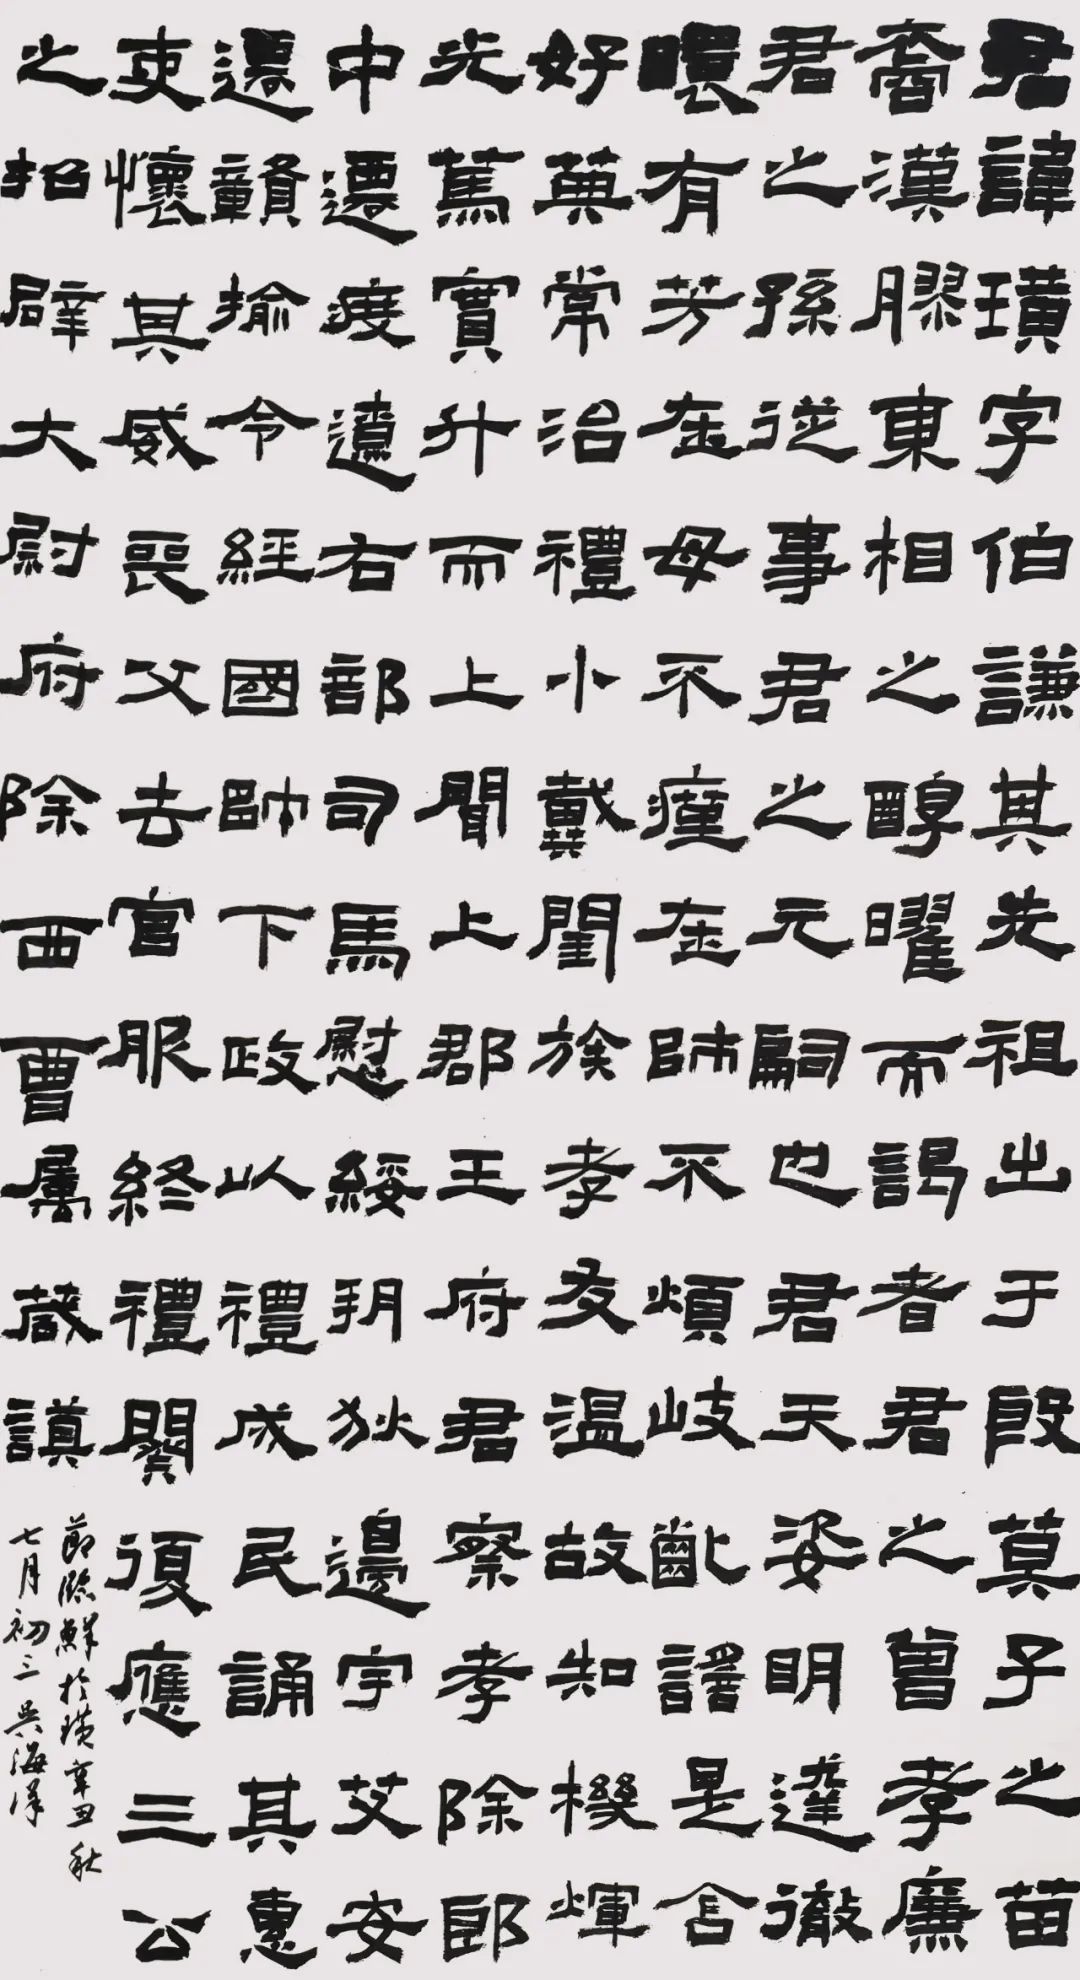 君諱璜字伯謙其先祖出于殷箕子之苗
裔漢膠東相之醇曜而謁者君之曾孝廉
君之孫從事君之元嗣也君天姿明達徹
㬇有芳在母不瘽在師不煩岐齔謠是含
好英常治禮小戴閨族孝友溫故知機煇
光篤實升而上聞上郡王府君察孝除郎
中遷度遼右部司馬慰綏朔狄邊宇艾安
遷贛揄令經國帥下政以禮成民誦其惠
吏懷其威喪父去官服終禮闋復應三公
之招辟大尉府除西曹屬葴謨
節臨鮮於璜辛丑秋
七月初三吳海洋